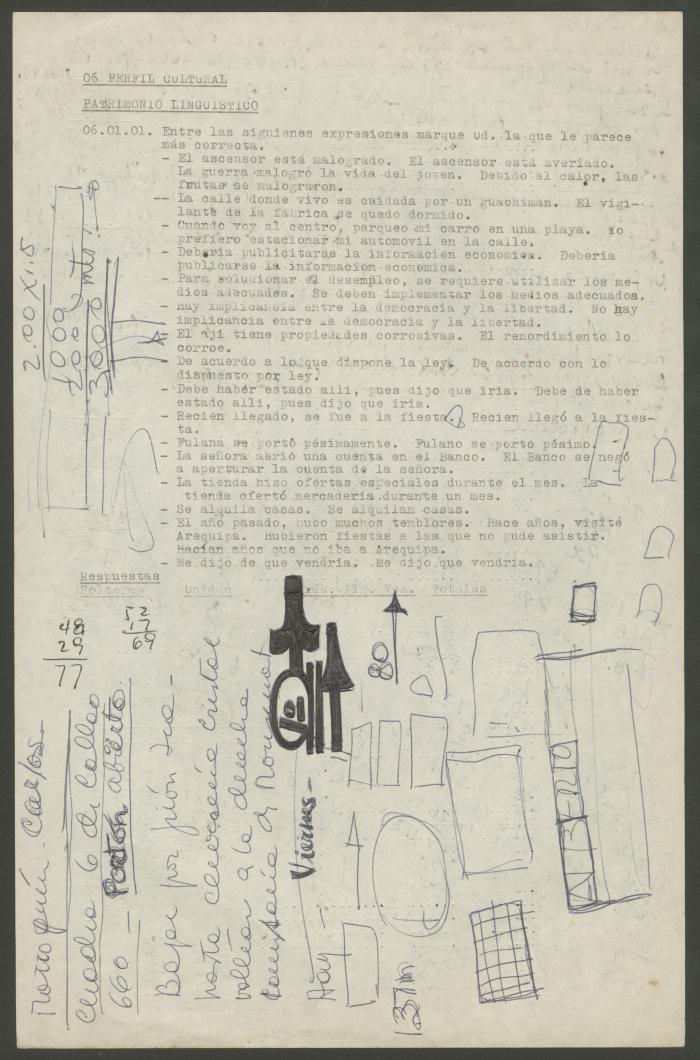 06 PERFIL CULTURAL
PATRIMONIO LINGUISTICO
06.01.01. Entre las siguienes expresiones marque Ud. la que le parece
más correcta.
- El ascensor está malogrado. El ascensor está averiado.
La guerra malogró la vida del joven. Debido al calor, las
frutas se malograron.
-- La calle donde vivo es cuidada por un guachiman. El vigi-
lante de la fábrica se quedo dormido.
- Cuando voy al centro, parqueo mi carro en una playa. Yo
prefiero estacionar mi automovil en la calle.
- Debería publicitarse la información economica. Debería
publicarse la información economica.
- Para solucionar el desempleo, se requiere utilizar los me-
dios adecuados. Se deben implementar los medios adecuados.
- Hay implicancia entre la democracia y la libertad. No hay
implicancia entre la democracia y la libertad.
- El ají tiene propiedades corrosivas. El remordimiento lo
corroe.
- De acuerdo a lo que dispone la ley. De acuerdo con lo
dispuesto por ley.
- Debe haber estado alli, pues dijo que iria. Debe de haber
estado alli, pues dijo que iria.
- Recien llegado, se fue a la fiesta. Recien llegó a la fies-
ta.
- Fulana se portó pésimamente. Fulano se portó pésimo.
- La señora abrió una cuenta en el Banco. El Banco se negó
a aperturar la cuenta de la señora.
- La tienda hizo ofertas especiales durante el mes. La
tienda ofertó mercadería durante un mes.
- Se alquila casas. Se alquilan casas.
- El año pasado, hubo muchos temblores. Hace años, visité
Arequipa. Hubieron fiestas a las que no pude asistir.
Hacían años que no iba a Arequipa.
- Me dijo de que vendria. Me dijo que vendria.
Respuestas
Solteros Unidos Vda. Totales
2.00 x 1.5
1009
3000 mts
48
29
77
52
17
69
Carlos
Cuadra 6 de Callao
660 - Portón abierto
Bajar por
hasta cristal
voltear a la derecha
Viernes -
80
137m